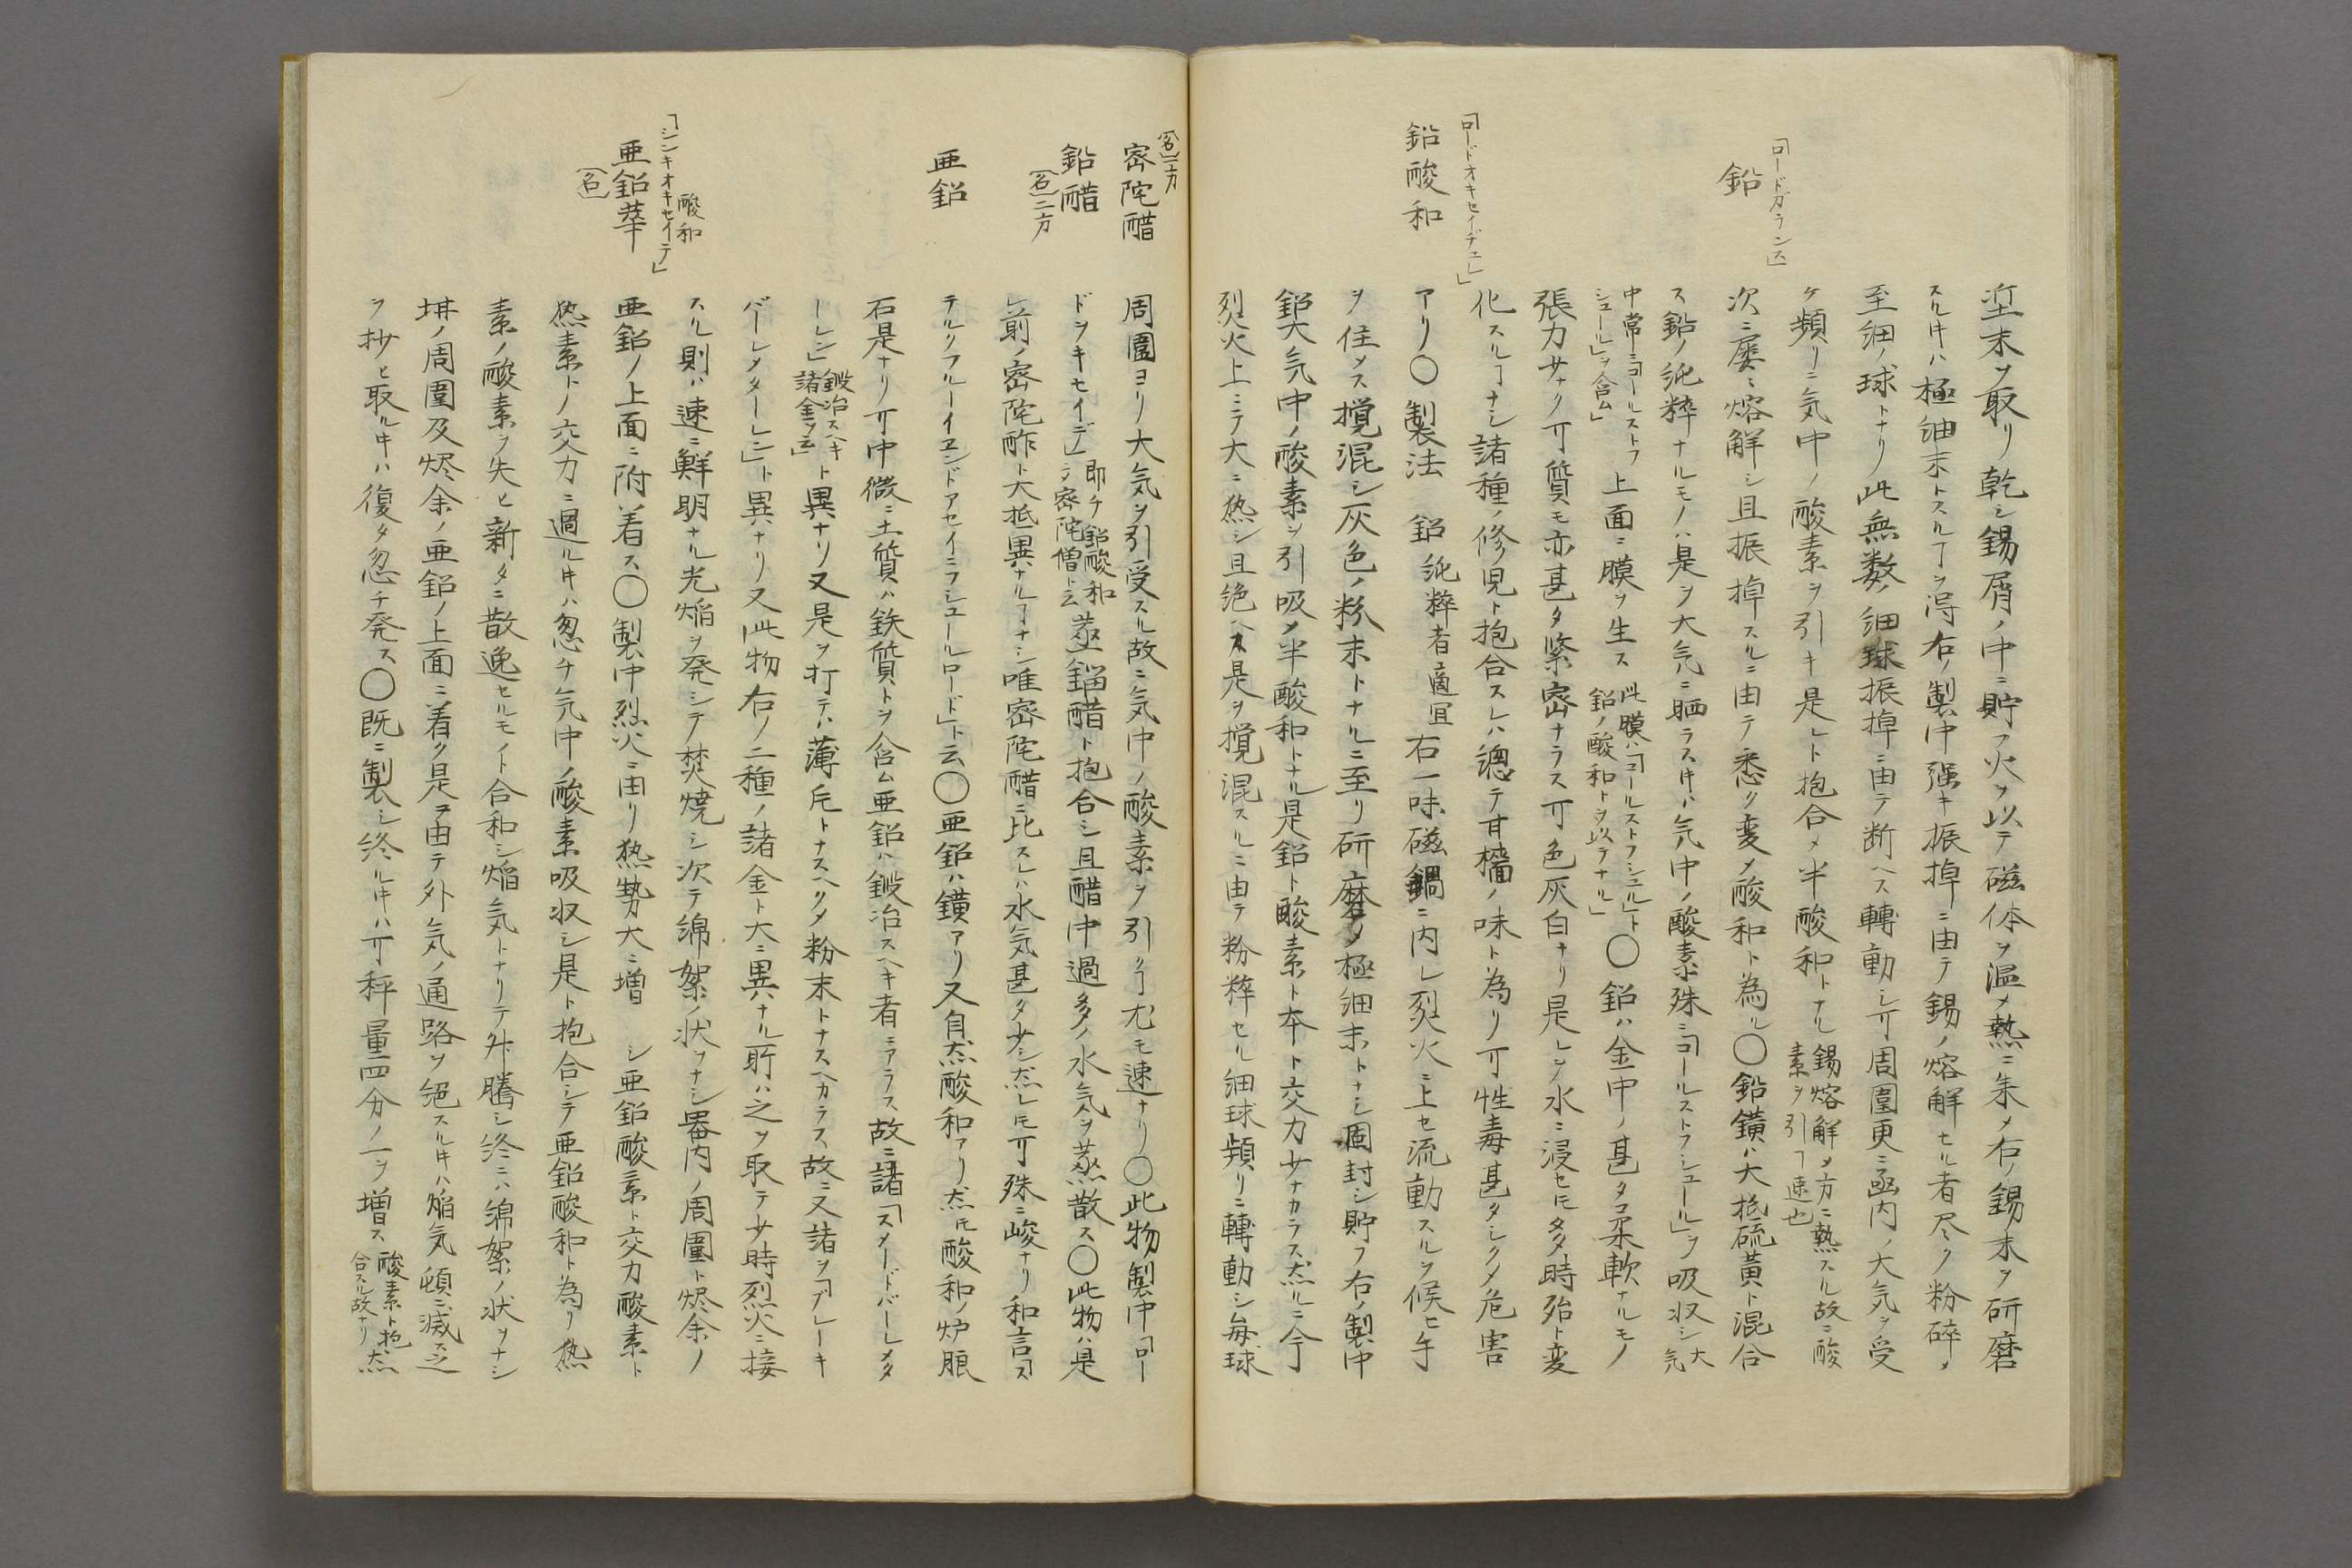 坌末ヲ取リ乾シ錫屑ノ中ニ貯フ火ヲ以テ磁体ヲ温メ熱ニ朱メ右ノ錫末ヲ研磨
スル𪜈ハ極細末トスルヿヲ得右ノ製中强キ振掉ニ由テ錫ノ熔解セル者尽ク粉碎メ
至細ノ球トナリ此無数ノ細球振掉ニ由テ断ヘス轉動シ丌周圍更ニ凾内ノ大気ヲ受
ケ頻リニ気中ノ酸素ヲ引キ是レト抱合メ半酸和トナル
錫熔解メ方ニ熱スル故ニ酸
素ヲ引ヿ速也
「ロードガランス」
鉛
次ニ屡々熔解シ且振掉スルニ由テ悉ク変メ酸和ト為ル〇鉛鑛ハ大抵硫黄ト混合
ス鉛ノ純粹ナルモノハ是ヲ大気ニ晒ラス𪜈ハ気中ノ酸素殊ニ「コールストフシュール」ヲ吸収シ
大気
中常ニ「コールストフ
シュール」ヲ含ム」
上面ニ膜ヲ生ス
此膜ハ「コールストフシュル」ト
鉛ノ酸和トヲ以テナル」
〇鉛ハ金中ノ甚タ柔軟ナルモノ
張力少ナク丌質モ亦甚タ緊密ナラス丌色灰白ナリ是レヲ水ニ浸セ𪜈多時殆ト変
化スルヿナシ諸種ノ修児ト抱合スレハ總テ甘橊ノ味ト為リ丌性毒甚タシクメ危害
「ロードオキセイヂュ」
鉛酸和
アリ〇製法　鉛純粹者適宜右一味磁鍋ニ内レ烈火ニ上セ流動スルヲ候ヒ手
ヲ住メス撹混シ灰色ノ粉末トナルニ至リ研磨メ極細末トナシ固封シ貯フ右ノ製中
鉛大気中ノ酸素ヲ引吸メ半酸和トナル是鉛ト酸素ト本ト交力少ナカラス然ルニ今
烈火上ニテ大ニ热シ且絶ヘス是ヲ撹混スルニ由テ粉粹セル細球頻リニ轉動シ毎球
(名)二方
密陀醋
周圍ヨリ大気ヲ引受スル故ニ気中ノ酸素ヲ引クヿ尤モ速ナリ〇此物製中「ロー
鉛醋
(名)二方
ドヲキセイデ」
即チ鉛酸和
ラ密陀僧ト云
蒸餾醋ト抱合シ且醋中過多ノ水気ヲ蒸散ス〇此物ハ是
レ前ノ密陀酢ト大抵異ナルヿナシ唯密陀醋ニ比スレハ水気甚タ少シ然レ𪜈丌殊ニ峻ナリ和言「ス
亜鉛
テルクフルーイエンドアセイニフシュールロード」ト云〇亜鉛ハ鑛アリ又自然酸和アリ然𪜈酸和ノ炉眼
石是ナリ丌中微ニ土質ハ鉄質トヲ含ム亜鉛ハ鍛冶スヘキ者ニアラス故ニ諸「スメードバーレメタ
ーレン」
鍛冶スヘキ
諸金ヲ云
ト異ナリ又是ヲ打テハ薄片トナスヘクメ粉末トナスヘカラス故ニ又諸ヲ「ブレーキ
バーレメターレン」ト異ナリ又此物右ノ二種ノ諸金ト大ニ異ナル所ハ之ヲ取テ少時烈火ニ接
スル則ハ速ニ鮮明ナル光焔ヲ発シテ焚焼シ次テ綿絮ノ状ヲナシ器内ノ周圍ト烬余ノ
「シンキオキセイテ」
酸和
亜鉛華
(名)
亜鉛ノ上面ニ附着ス〇製中烈火ニ由リ热勢大ニ増　シ亜鉛酸素ト交力酸素ト
热素トノ交力ニ過ル𪜈ハ忽チ気中ノ酸素吸収シ是ト抱合シテ亜鉛酸和ト為リ热
素ノ酸素ヲ失ヒ新タニ散逸セルモノト合和シ焔気トナリテ外騰シ終ニハ綿絮ノ状ヲナシ
坩ノ周圍及烬余ノ亜鉛ノ上面ニ着ク是ヲ由テ外気ノ通路ヲ絶スル𪜈ハ焔気頓ニ滅ス之
ヲ抄ヒ取ル𪜈ハ復タ忽チ発ス〇既ニ製シ終ル𪜈ハ丌秤量四分ノ一ヲ増ス
酸素ト抱
合スル故ナリ
然